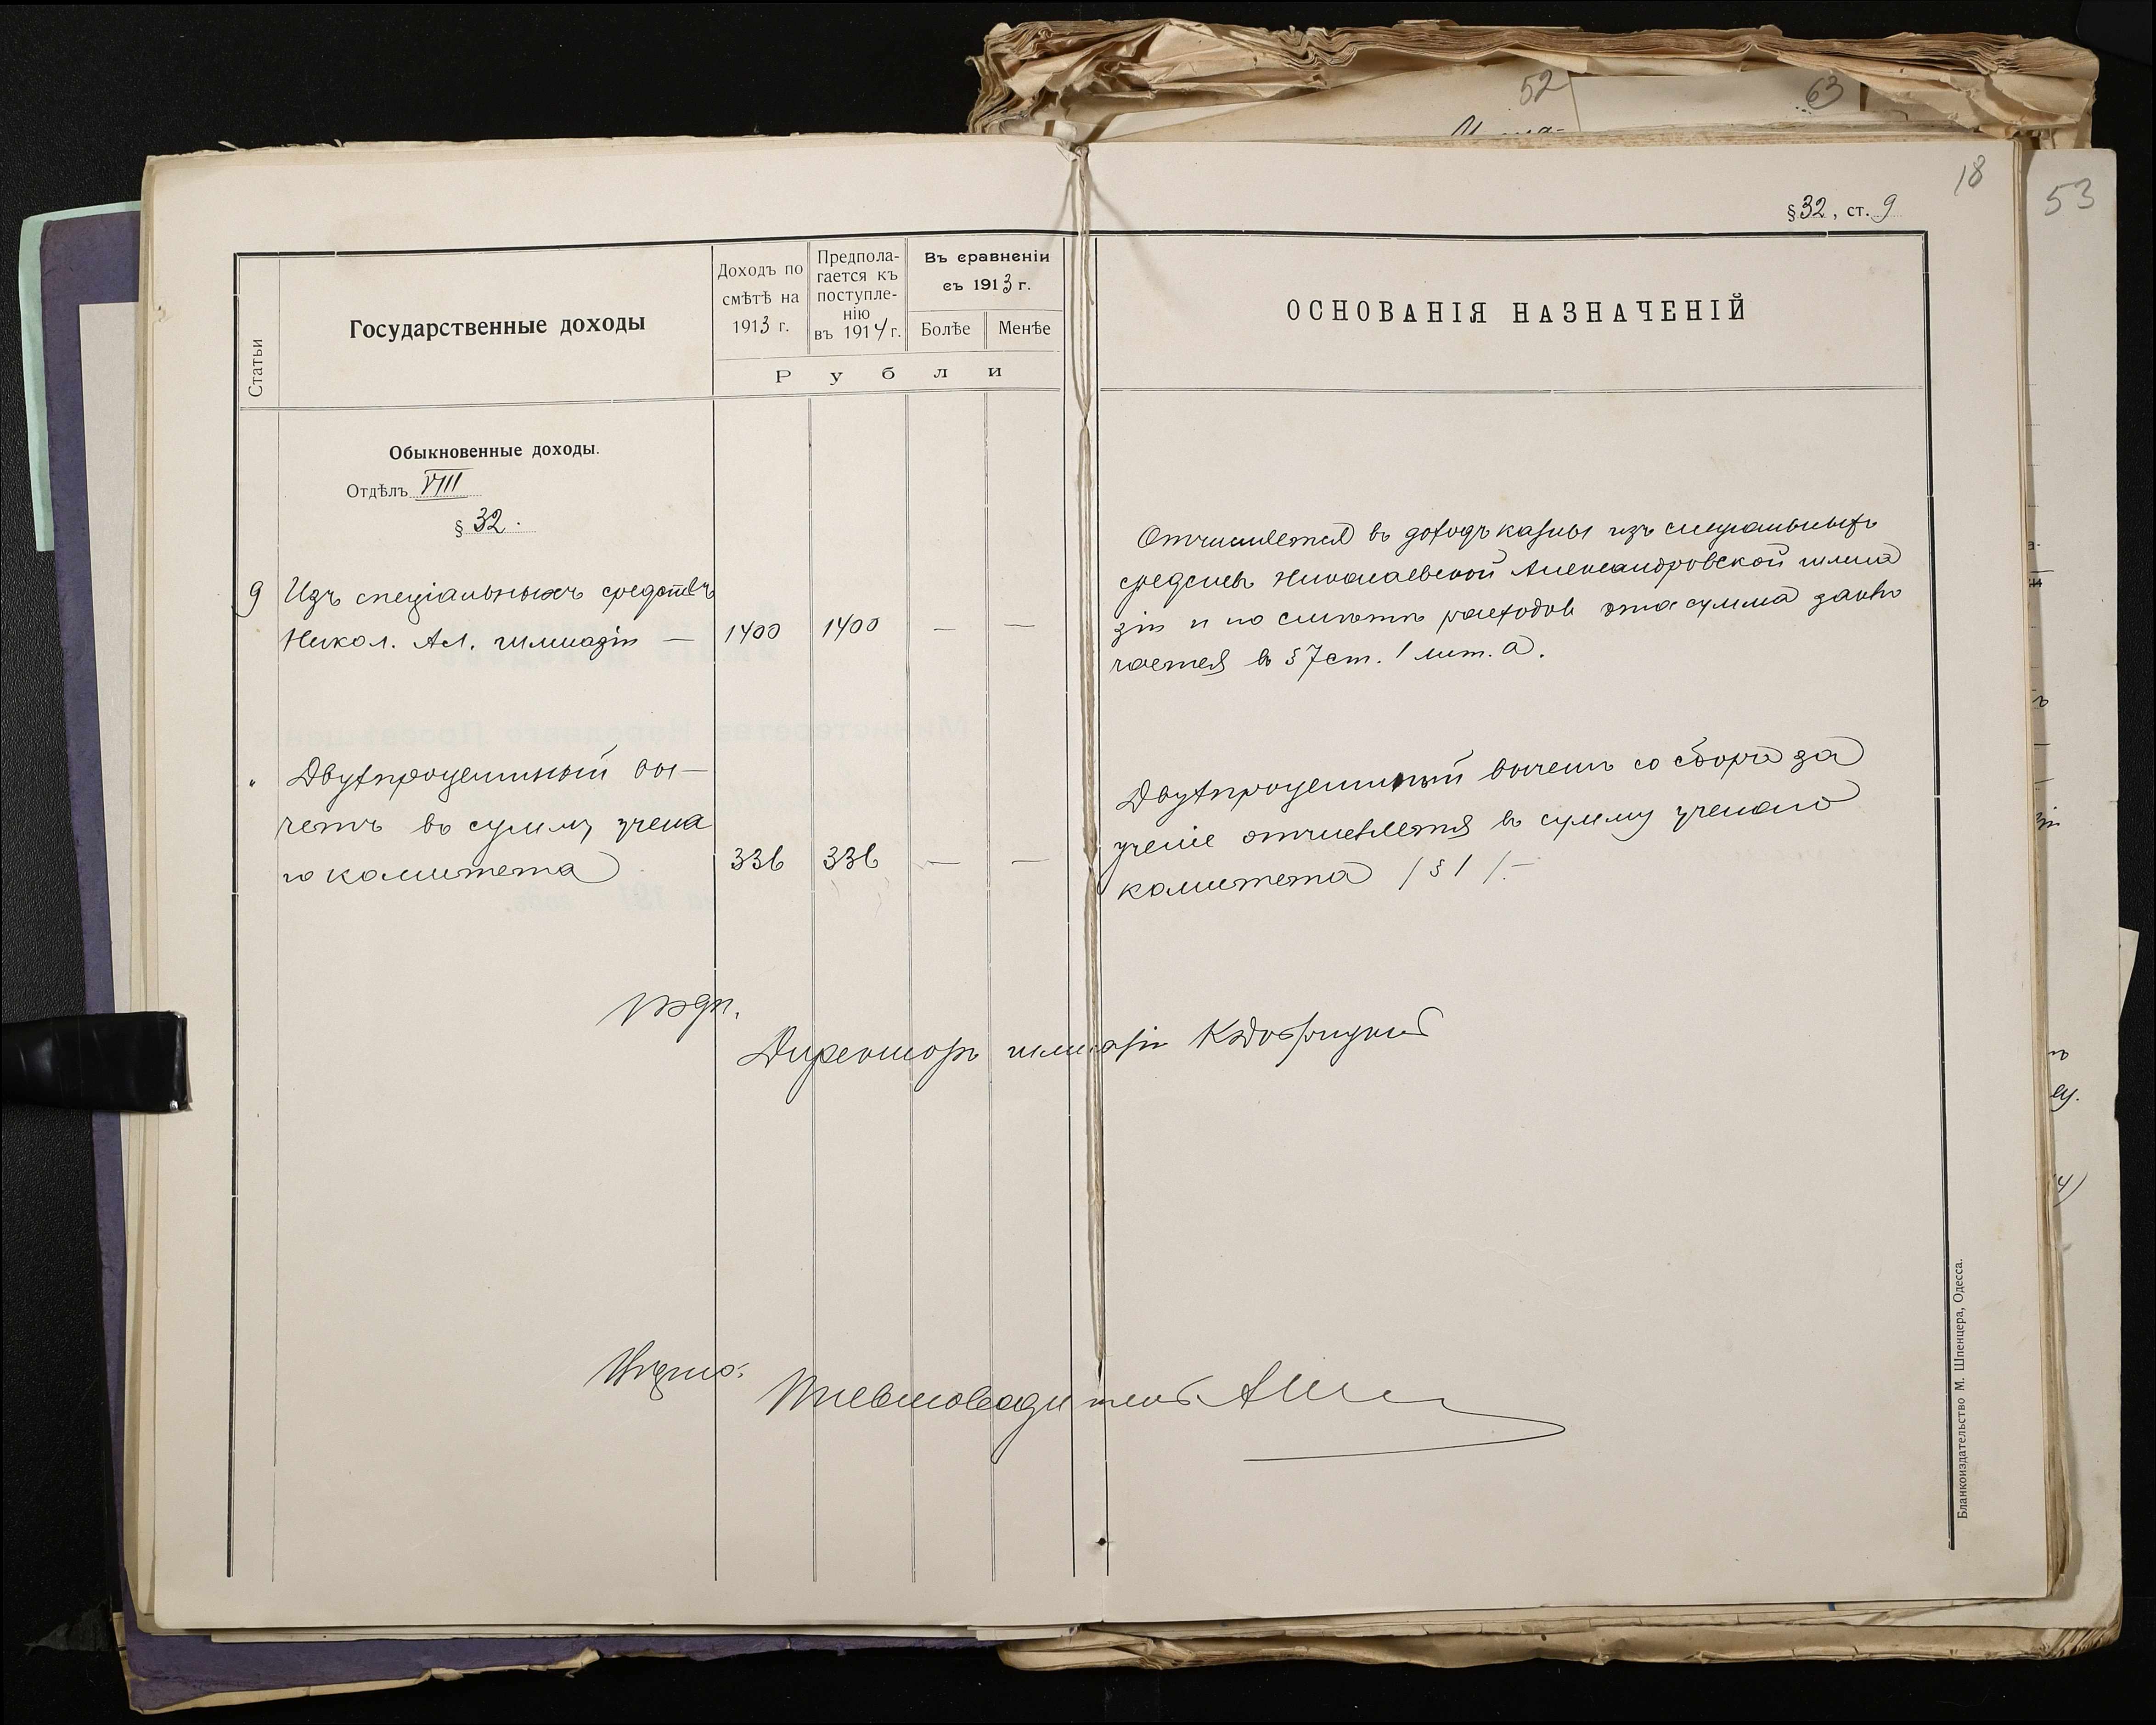 52
63
18
53
§ 32, ст. 9
Статьи
Государственные доходы
Доходъ по
смѣтѣ на
1913 г.
Предпола-
гается къ
поступле-
нію
въ 1914 г.
Въ сравненіи
съ 1913 г.
Болѣе
Менѣе
Рубли
ОСНОВАНІЯ НАЗНАЧЕНІЙ
Обыкновенные доходы.
Отдѣлъ VIII
§ 32.
9 Изъ спеціальныхъ средствъ
Никол. Ал. гимназіи — 1400 1400 — —
Отчисляется въ доходъ казны изъ спеціальныхъ
средствъ Николаевской Александровской гимна
зіи и по смѣтѣ расходовъ эта сумма заклю
чается въ § 7 ст. 1 лит. а.
" Двухпроцентный вы-
четъ въ сумму учена
го комитета 336 336 — —
Двухпроцентный вычетъ со сбора за
ученіе отчисляется въ сумму ученаго
комитета / § 1 /.-
Директоръ гимназіи
Письмоводитель
Бланкоиздательство М. Шпенцера, Одесса.